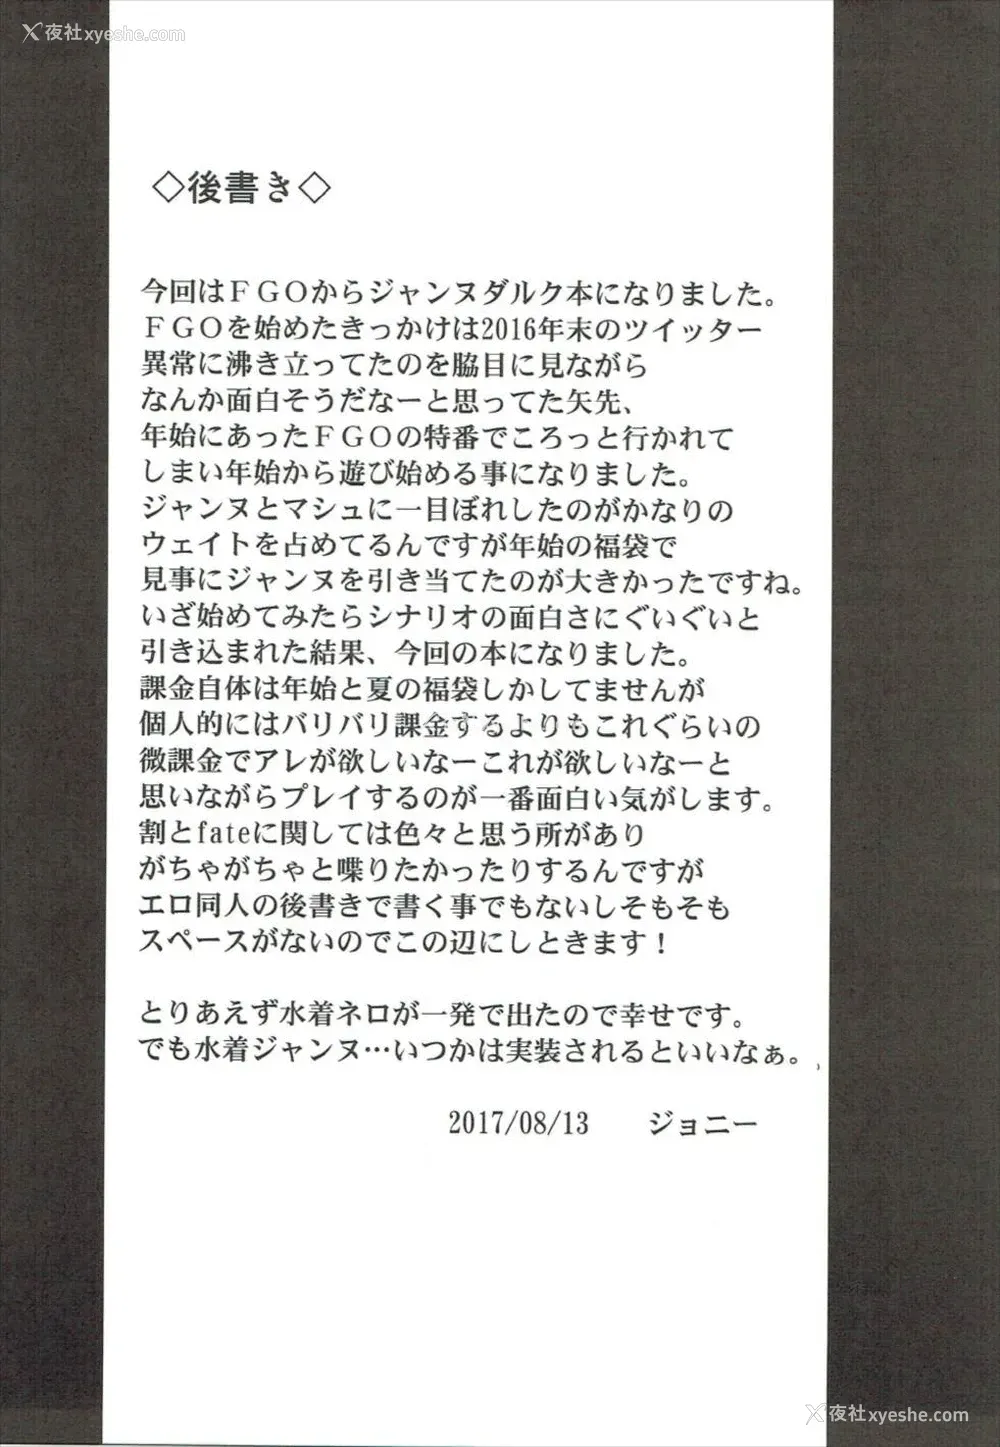 夜社xyeshe.com
◇後書き◇
今回はＦＧＯからジャンヌダルク本になりました。
ＦＧＯを始めたきっかけは2016年末のツイッター
異常に沸き立ってたのを脇目に見ながら
なんか面白そうだなーと思ってた矢先、
年始にあったＦＧＯの特番でころっと行かれて
しまい年始から遊び始める事になりました。
ジャンヌとマシュに一目ぼれしたのがかなりの
ウェイトを占めてるんですが年始の福袋で
見事にジャンヌを引き当てたのが大きかったですね。
いざ始めてみたらシナリオの面白さにぐいぐいと
引き込まれた結果、今回の本になりました。
課金自体は年始と夏の福袋しかしてませんが
個人的にはバリバリ課金するよりもこれぐらいの
微課金でアレが欲しいなーこれが欲しいなーと
思いながらプレイするのが一番面白い気がします。
割とfateに関しては色々と思う所があり
がちゃがちゃと喋りたかったりするんですが
エロ同人の後書きで書く事でもないしそもそも
スペースがないのでこの辺にしときます！
とりあえず水着ネロが一発で出たので幸せです。
でも水着ジャンヌ…いつかは実装されるといいなぁ。
2017/08/13　ジョニー
夜社xyeshe.com